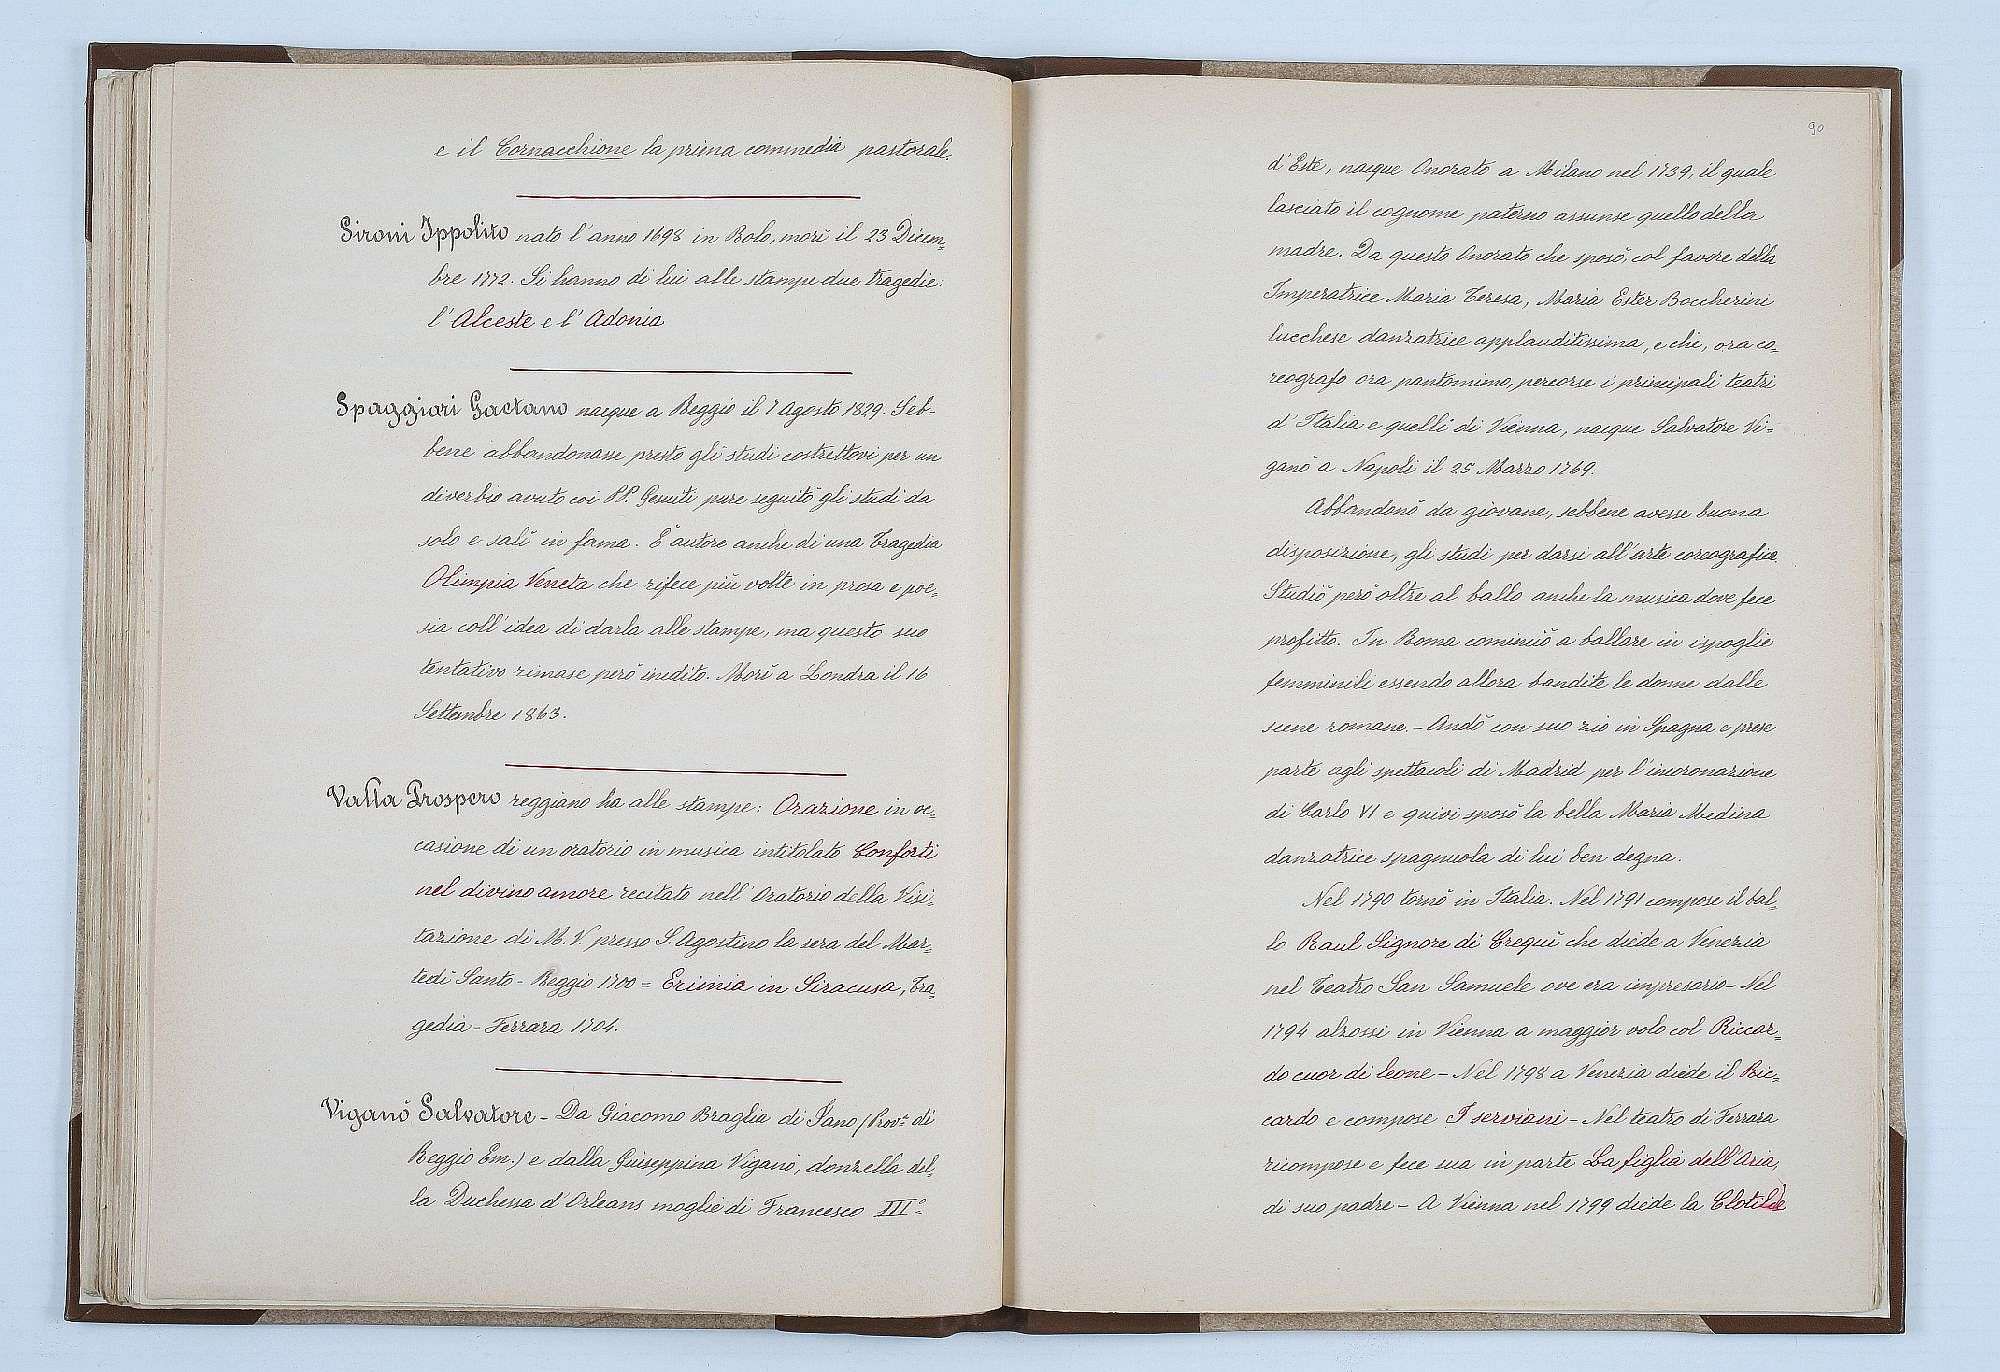 e il Cornacchione la prima commedia pastorale.
Sironi Ippolito nato l'anno 1698 in Bolo, morì il 23 Dicem-
bre 1772. Si hanno di lui alle stampe due tragedie:
l'Alceste e l'Adonia
Spaggiari Gaetano nacque a Reggio il 7 Agosto 1829. Seb-
bene abbandonasse presto gli studi costrettovi per un
diverbio avuto coi PP. Gesuiti pure seguitò gli studi da
solo e salì in fama. È autore anche di una Tragedia
Olimpia Veneta che rifece più volte in prosa e poe-
sia coll'idea di darla alle stampe, ma questo suo
tentativo rimase però inedito. Morì a Londra il 16
Settembre 1863.
Valla Prospero reggiano ha alle stampe: Orazione in oc-
casione di un oratorio in musica intitolato Conforti
nel divino amore recitato nell'Oratorio della Visi-
tazione di M. V. presso S. Agostino la sera del Mar-
tedì Santo - Reggio 1700 = Ericinia in Siracusa, Tra-
gedia - Ferrara 1704.
Viganò Salvatore - Da Giacomo Braglia di Sano (Prov. di
Reggio Em.) e dalla Guiseppina Viganò, donzella del-
la Duchessa d'Orleans moglie di Francesco III°
90
d'Este, nacque Onorato a Milano nel 1739, il quale
lasciato il cognome paterno assunse quello della
madre. Da questo Onorato che sposò, col favore della
Imperatrice Maria Teresa, Maria Ester Boccherini
lucchese danzatrice applauditissima, e chi, ora co-
reografo ora pantomimo, percorse i principali teatri
d'Italia e quelli di Vienna, nacque Salvatore Vi-
ganò a Napoli il 25 Marzo 1769.
Abbandonò da giovane, sebbene avesse buona
disposizione, gli studi per darsi all'arte coreografica.
Studiò però oltre al ballo anche la musica dove fece
profitto. In Roma cominciò a ballare in ispoglie
femminili essendo allora bandite le donne dalle
scene romane. - Andò con suo zio in Spagna e prese
parte agli spettacoli di Madrid per l'incoronazione
di Carlo VI e quivi sposò la bella Maria Medina
danzatrice spagnuola di lui ben degna.
Nel 1790 tornò in Italia. Nel 1791 compose il bal-
lo Raul Signore di Crequì che diede a Venezia
nel Teatro San Samuele ove era impresario - Nel
1794 alzossi in Vienna a maggior volo col Riccar-
do cuor di leone - Nel 1798 a Venezia diede il Ric-
cardo e compose I serviani - Nel teatro di Ferrara
ricompose e fece sua in parte La figlia dell'Aria,
di suo padre - A Vienna nel 1799 diede la Clotilde